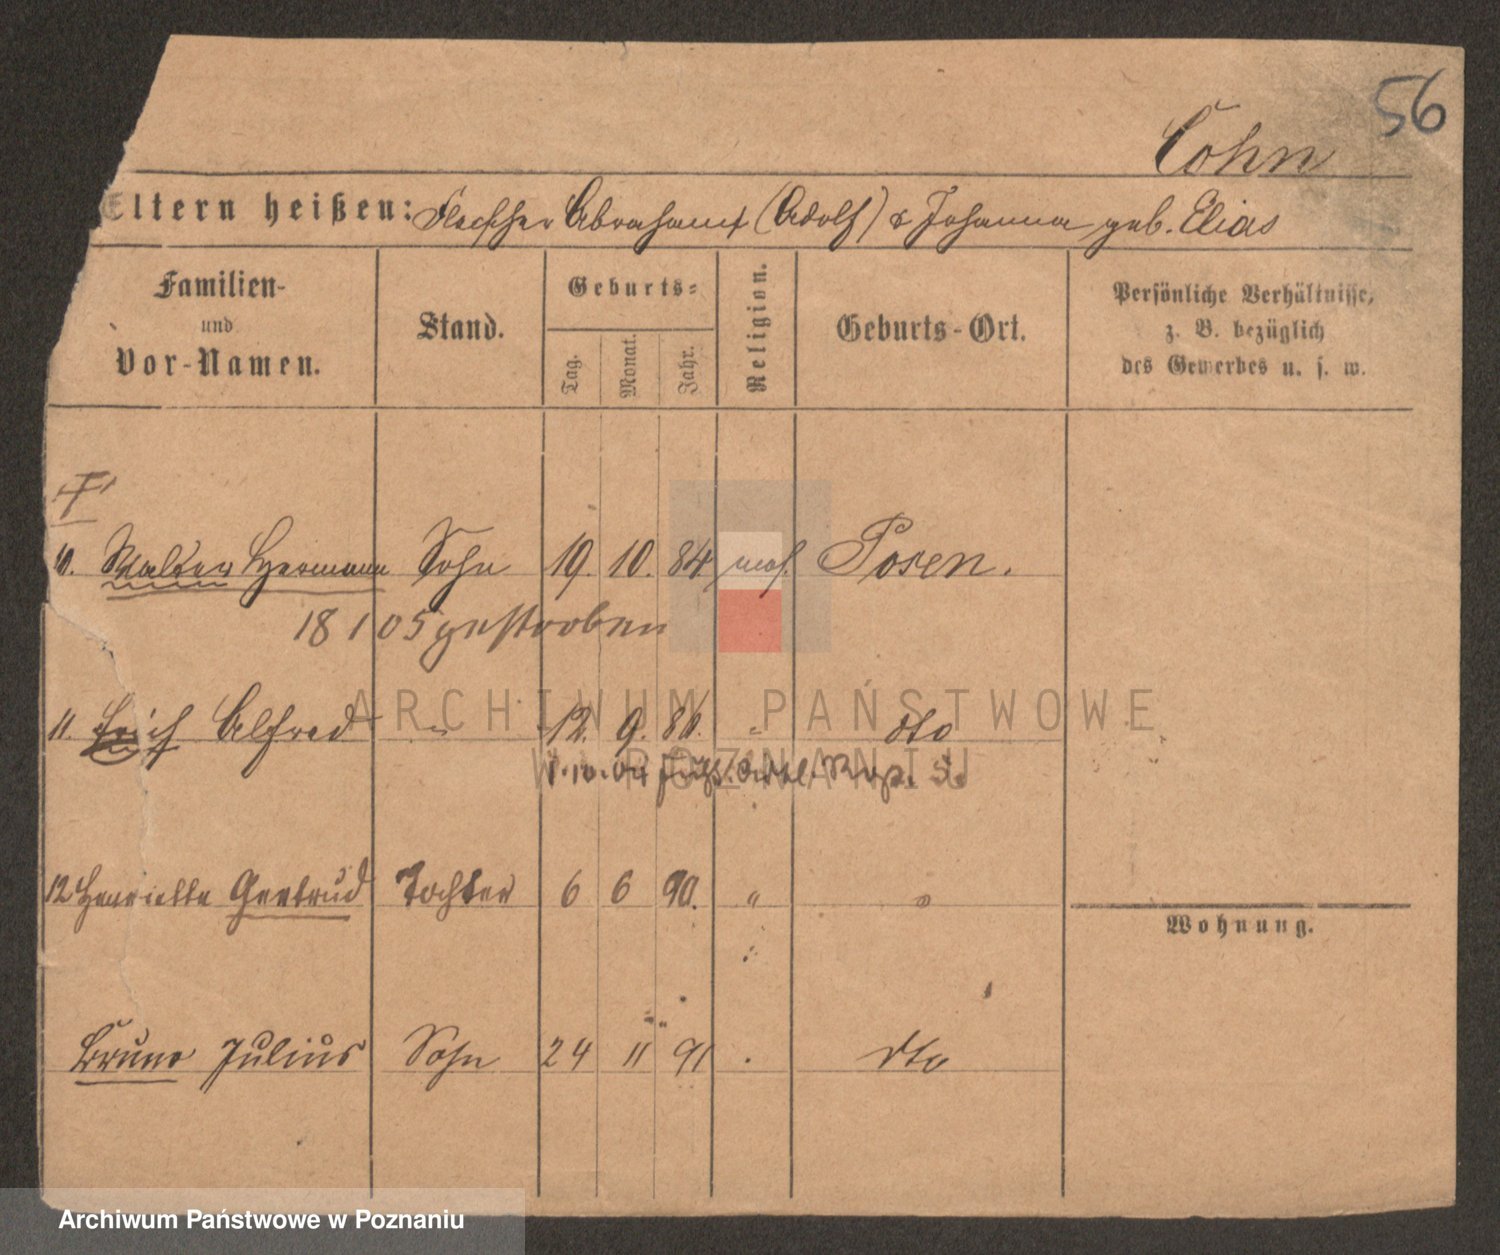 56
Cohn
Eltern heißen: Fleischer Abraham (Adolf) & Johanna geb. Elias
Familien-
und
Vor-Namen.
Stand.
Geburts-
Tag.
Monat.
Jahr.
Religion.
Geburts-Ort.
Persönliche Verhältnisse,
z. B. bezüglich
des Gewerbes u. s. w.
10. Walter Hermann Sohn 19. 10. 84 mos. Posen.
18 1 05 gestorben
11. Erich Alfred " 12. 9. 86. " dto
1.10.04
12 Henriette Gertrud Tochter 6 6 90. " "
Wohnung.
Bruno Julius Sohn 24 11 91 dto
ARCHIWUM PAŃSTWOWE
W POZNANIU
Archiwum Państwowe w Poznaniu